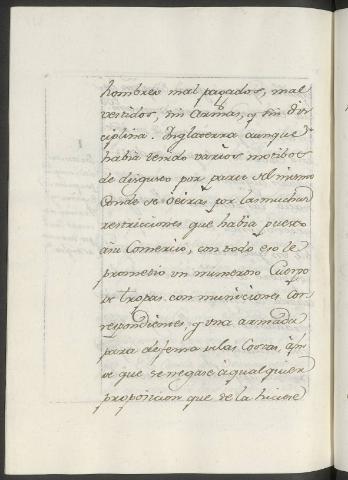 hombres mal pagados, mal
vestidos, sin armas, y sin dis-
ciplina. Inglaterra aunque
habia tenido varios motibos
de disgusto por parte del mismo
Conde de Oeiras por las muchas
restricciones que habia puesto
a su Comercio, con todo eso le
prometio un numeroso Cuerpo
de tropas con municiones cor-
respondientes, y una armada
para defensa de las Costas, à fin
de que se negase à qualquier
proposicion que se la hiciese